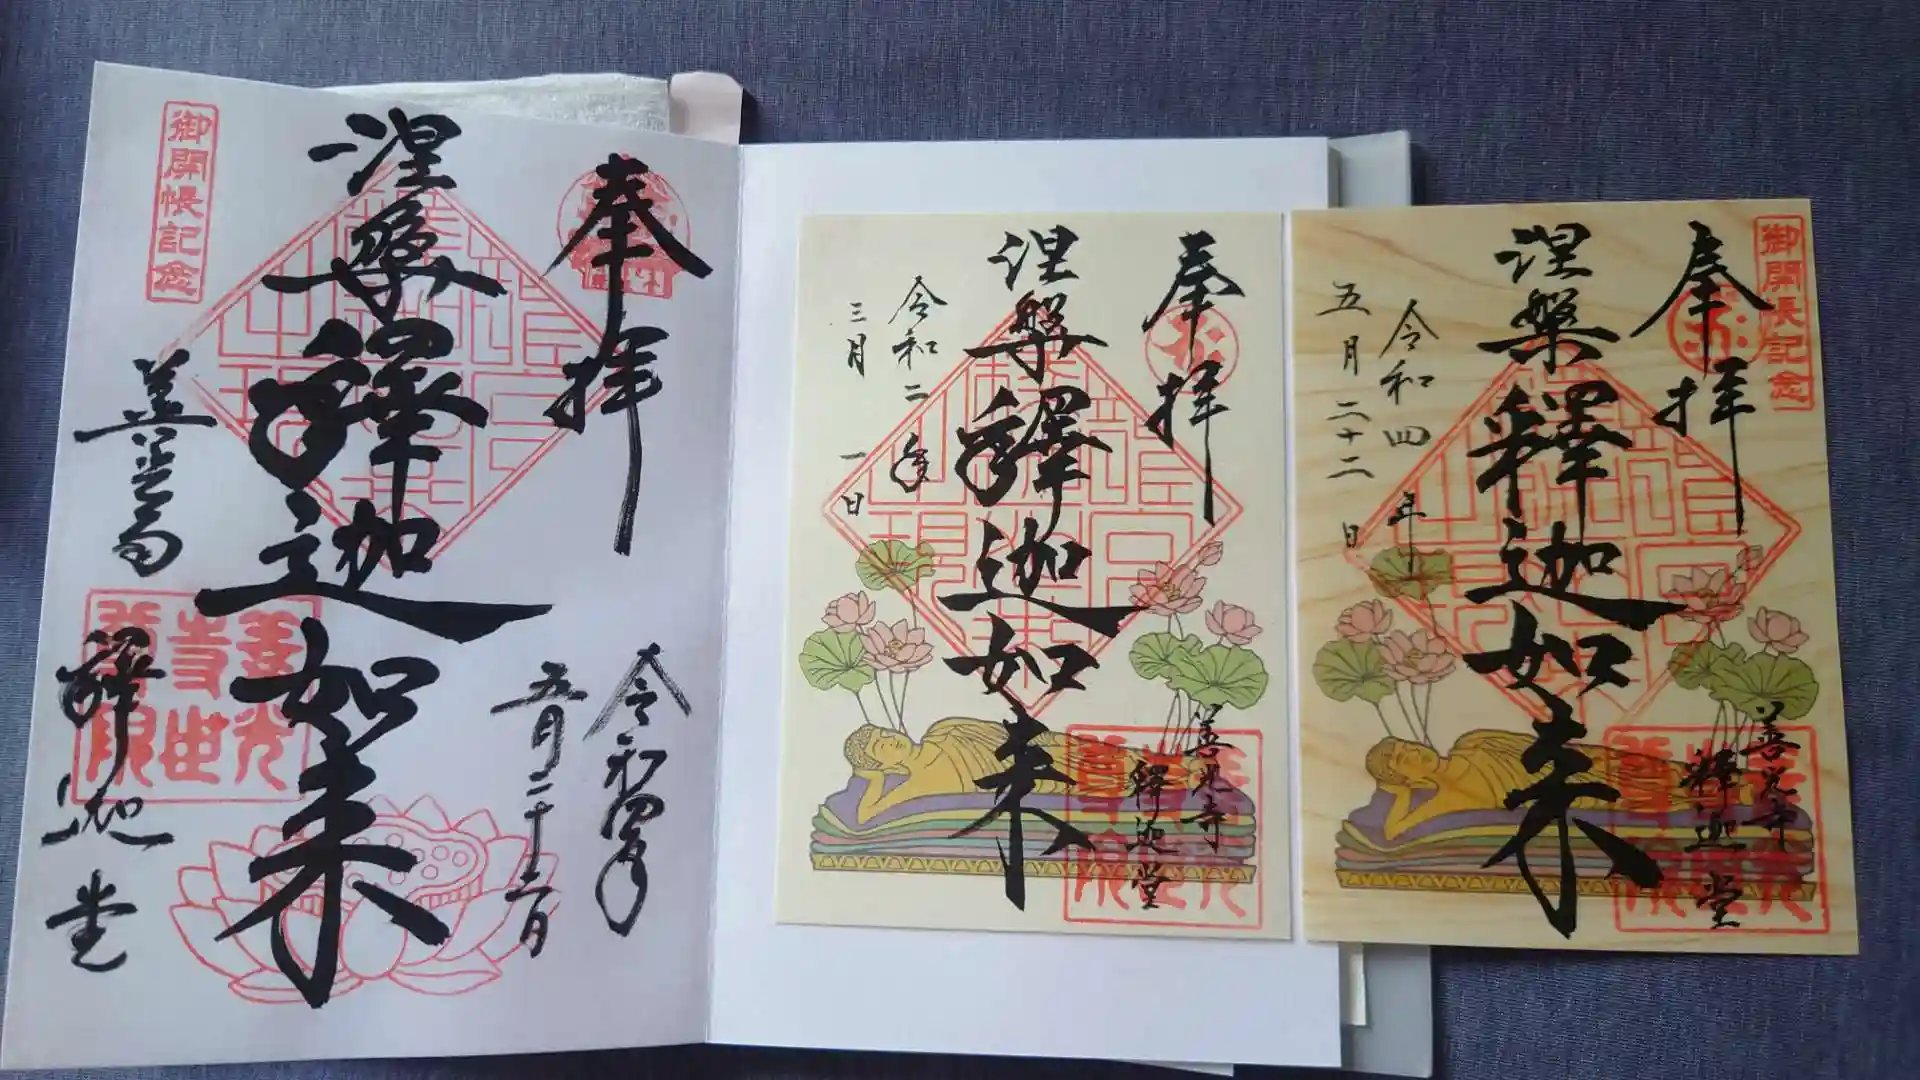 奉拝
令和四年
五月二十二日
涅槃釋迦如来
御開帳記念
善光寺
釋迦堂
善光寺世尊院
奉拝
涅槃釋迦如来
令和二年
三月一日
善光寺
釋迦堂
善光寺世尊院
御開帳記念
奉拝
涅槃釋迦如来
令和四年
五月二十二日
善光寺
釋迦堂
善光寺世尊院